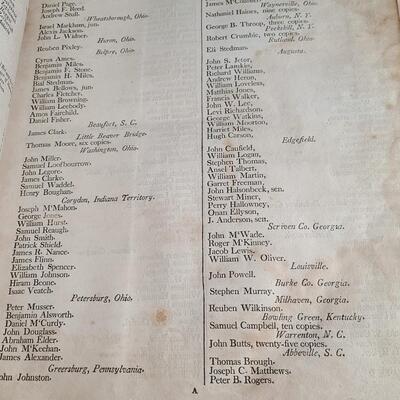 Daniel Page.
Joseph F. Reed.
Andrew Stull.
Wheatsborough, Ohio.
Israel Markham, jun.
Alexis Jackson.
John L. Widner.
Huron, Ohio.
Reuben Pixley.
Belpre, Ohio.
Cyrus Ames.
Benjamin Miles.
Benjamin F. Stone.
Benjamin H. Miles.
Bial Stedman.
James Bellows, jun
Charles Fletcher.
William Browning.
William Leebody.
Amos Fairchild.
Daniel Fisher.
Beaufort, S. C.
James Clark.
Little Beaver Bridge.
Thomas Moore, six copies.
Washington, Ohio.
John Miller.
Samuel Loofbourrow.
John Legore.
James Clarke.
Samuel Waddel.
Henry Boughan.
Corydon, Indiana Territory.
Joseph M'Mahon.
George Jones.
William Hurst.
Samuel Reaugh.
John Smith.
Patrick Shield.
James R. Nance.
James Flinn.
Elizabeth Spencer.
William Johnson.
Hiram Boone.
Isaac Veatch.
Petersburg, Ohio.
Peter Musser.
Benjamin Alsworth.
Daniel M'Curdy.
John Douglass.
Abraham Elder.
John M'Keehan.
James Alexander.
Greersburg, Pennsylvania.
John Johnston.
Waynesville, Ohio.
Nathaniel Haines, nine copies.
Auburn, N. Y.
George B. Throop, three copies.
Peekskill, N. Y.
Robert Crumbie, two copies.
Rutland, Ohio.
Eli Stedman.
Augusta.
John S. Jetor,
Peter Lamkin,
Richard Williams,
Andrew Heron,
William Loveless,
Matthias Jones,
Francis Walker,
John W. Lee,
Levi Richardson.
George Watkins,
William Moorton,
Harriet Miles,
Hugh Carson,
Edgefield.
John Caufield,
William Logan,
Stephen Thomas,
Ansel Talbert,
William Martin,
Garret Freeman,
John Halsonbeck, sen.
Stewart Miner,
Perry Halloway,
Onan Ellyson,
J. Anderson, sen.
Scriven Co. Georgia.
John M'Wade.
Roger M'Kinney.
Jacob Lewis.
William W. Oliver.
Louisville.
John Powell.
Burke Co. Georgia.
Stephen Murray.
Milhaven, Georgia.
Reuben Wilkinson.
Bowling Green, Kentucky.
Samuel Campbell, ten copies.
Warrenton, N. C.
John Butts, twenty-five copies.
Abbeville, S. C.
Thomas Brough.
Joseph C. Matthews.
Peter B. Rogers.
A